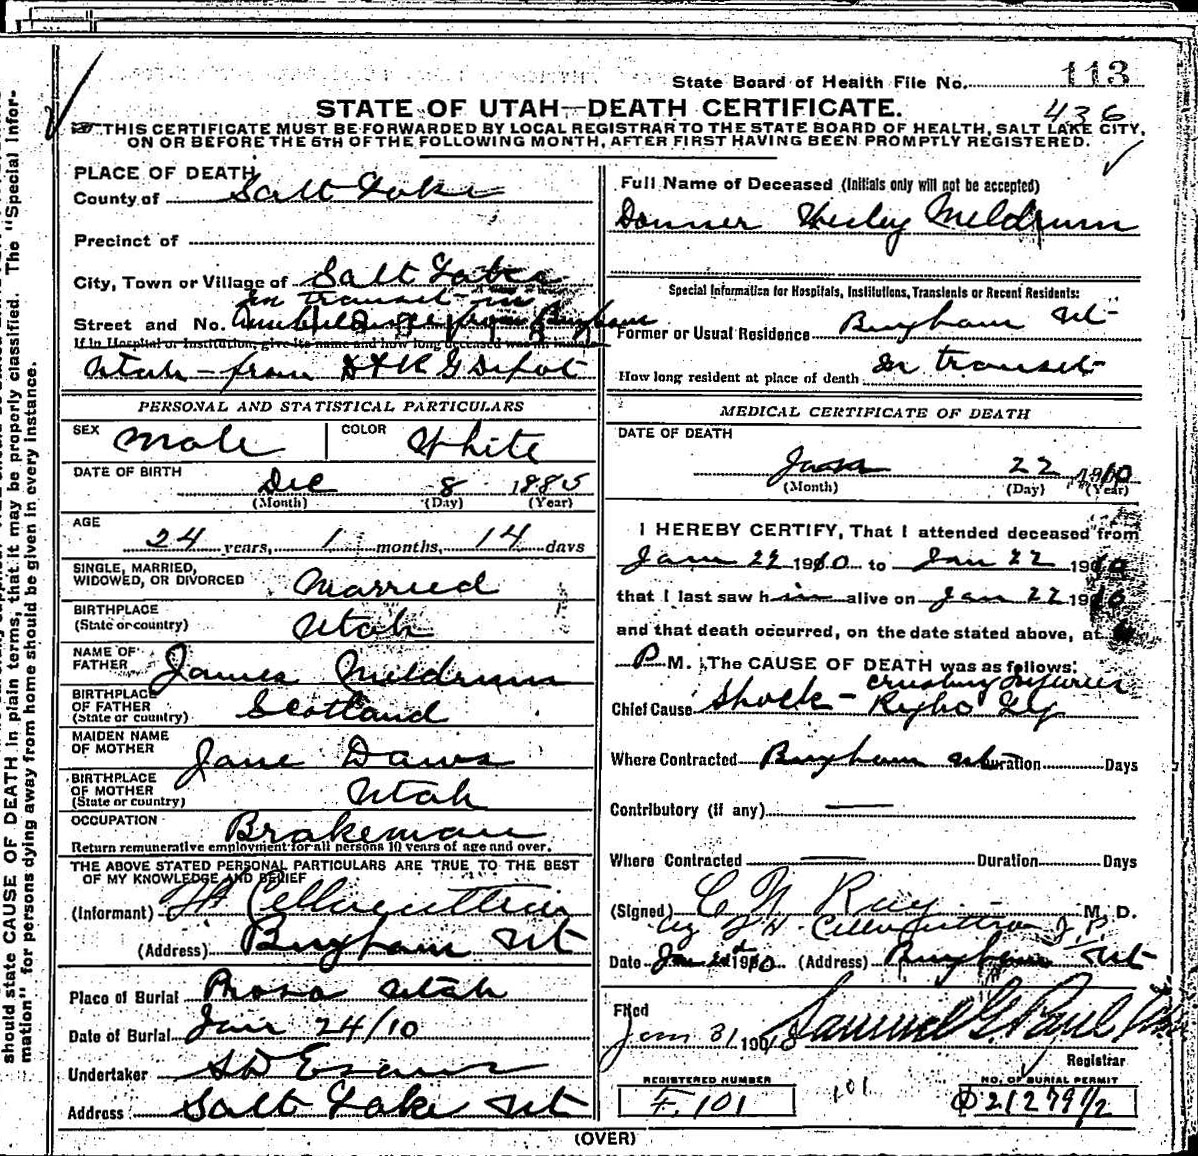 State Board of Health File No. 113
STATE OF UTAH—DEATH CERTIFICATE.
436
THIS CERTIFICATE MUST BE FORWARDED BY LOCAL REGISTRAR TO THE STATE BOARD OF HEALTH, SALT LAKE CITY,
ON OR BEFORE THE 5TH OF THE FOLLOWING MONTH, AFTER FIRST HAVING BEEN PROMPTLY REGISTERED.
PLACE OF DEATH
County of Salt Lake
Precinct of
City, Town or Village of Salt Lake
In transit in
Street and No. from Bingham
If in Hospital or Institution, give its name and how long deceased was an inmate
Utah - from D & R G Depot
PERSONAL AND STATISTICAL PARTICULARS
SEX Male COLOR White
DATE OF BIRTH
Dec 8 1885
(Month) (Day) (Year)
AGE
24 years, 1 months, 14 days
SINGLE, MARRIED,
WIDOWED, OR DIVORCED Married
BIRTHPLACE
(State or country) Utah
NAME OF
FATHER James Meldrum
BIRTHPLACE
OF FATHER
(State or country) Scotland
MAIDEN NAME
OF MOTHER Jane
BIRTHPLACE
OF MOTHER
(State or country) Utah
OCCUPATION Brakeman
Return remunerative employment for all persons 10 years of age and over.
THE ABOVE STATED PERSONAL PARTICULARS ARE TRUE TO THE BEST
OF MY KNOWLEDGE AND BELIEF
(Informant)
(Address) Bingham Ut
Place of Burial Provo Utah
Date of Burial Jan 24/10
Undertaker S D Evans
Address Salt Lake Ut
Full Name of Deceased (Initials only will not be accepted)
Meldrum
Special Information for Hospitals, Institutions, Transients or Recent Residents:
Former or Usual Residence Bingham Ut
How long resident at place of death In transit
MEDICAL CERTIFICATE OF DEATH
DATE OF DEATH
Jan 22 1910
(Month) (Day) (Year)
I HEREBY CERTIFY, That I attended deceased from
Jan 22 1910 to Jan 22 1910
that I last saw him alive on Jan 22 1910
and that death occurred, on the date stated above, at
P M. The CAUSE OF DEATH was as follows:
crushing injuries
Chief Cause Shock - Right Leg
Where Contracted Bingham Ut Duration Days
Contributory (if any)
Where Contracted Duration Days
(Signed) Ray M. D.
by J.P.
Date 1910 (Address) Bingham Ut
Filed
Jan 31 1910 Samuel G. Paul
Registrar
REGISTERED NUMBER
F. 101
101
NO. OF BURIAL PERMIT
21279 1/2
(OVER)
should state CAUSE OF DEATH in plain terms, that it may be properly classified. The "Special Infor-
mation" for persons dying away from home should be given in every instance.